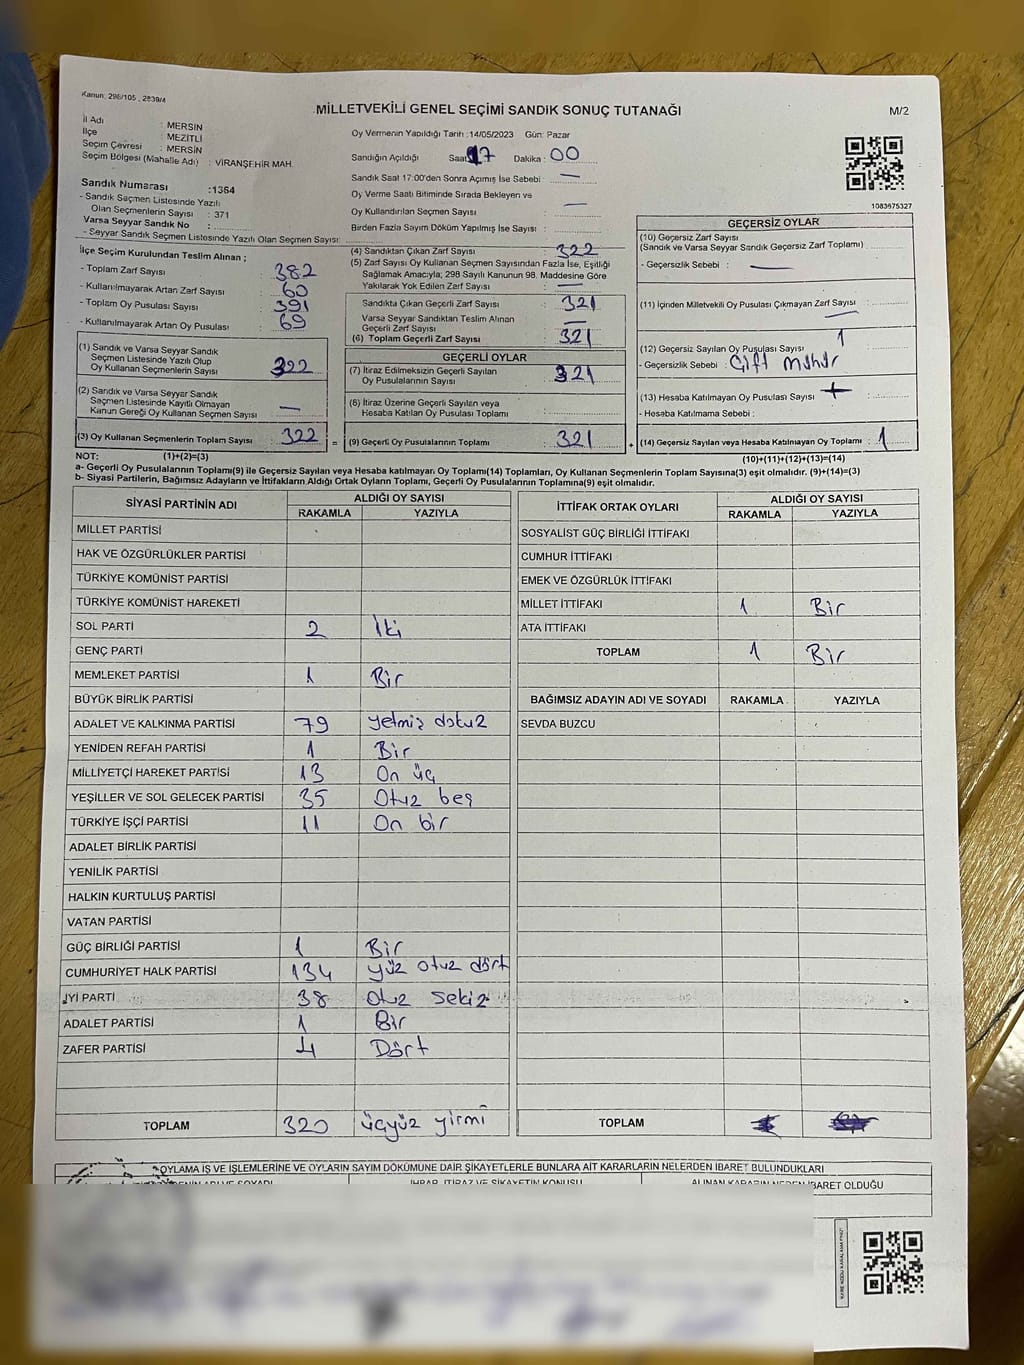 Kanun: 298/105, 2839/4
MİLLETVEKİLİ GENEL SEÇİMİ SANDIK SONUÇ TUTANAĞI
M/2
İl Adı : MERSİN
İlçe : MEZİTLİ
Seçim Çevresi : MERSİN
Seçim Bölgesi (Mahalle Adı) : VİRANŞEHİR MAH.
Sandık Numarası :1364
- Sandık Seçmen Listesinde Yazılı
Olan Seçmenlerin Sayısı : 371
Varsa Seyyar Sandık No :
- Seyyar Sandık Seçmen Listesinde Yazılı Olan Seçmen Sayısı:
Oy Vermenin Yapıldığı Tarih :14/05/2023 Gün: Pazar
Sandığın Açıldığı Saat 17 Dakika : 00
Sandık Saat 17:00'den Sonra Açılmış İse Sebebi : —
Oy Verme Saati Bitiminde Sırada Bekleyen ve
Oy Kullandırılan Seçmen Sayısı —
Birden Fazla Sayım Döküm Yapılmış İse Sayısı :
1083675327
İlçe Seçim Kurulundan Teslim Alınan ;
- Toplam Zarf Sayısı : 382
- Kullanılmayarak Artan Zarf Sayısı : 60
- Toplam Oy Pusulası Sayısı : 391
- Kullanılmayarak Artan Oy Pusulası : 69
(1) Sandık ve Varsa Seyyar Sandık
Seçmen Listesinde Yazılı Olup
Oy Kullanan Seçmenlerin Sayısı : 322
(2) Sandık ve Varsa Seyyar Sandık
Seçmen Listesinde Kayıtlı Olmayan
Kanun Gereği Oy Kullanan Seçmen Sayısı : —
(3) Oy Kullanan Seçmenlerin Toplam Sayısı : 322
(4) Sandıktan Çıkan Zarf Sayısı : 322
(5) Zarf Sayısı Oy Kullanan Seçmen Sayısından Fazla İse, Eşitliği
Sağlamak Amacıyla; 298 Sayılı Kanunun 98. Maddesine Göre
Yakılarak Yok Edilen Zarf Sayısı : —
Sandıkta Çıkan Geçerli Zarf Sayısı : 321
Varsa Seyyar Sandıktan Teslim Alınan
Geçerli Zarf Sayısı : —
(6) Toplam Geçerli Zarf Sayısı : 321
GEÇERLİ OYLAR
(7) İtiraz Edilmeksizin Geçerli Sayılan
Oy Pusulalarının Sayısı : 321
(8) İtiraz Üzerine Geçerli Sayılan veya
Hesaba Katılan Oy Pusulası Toplamı :
= (9) Geçerli Oy Pusulalarının Toplamı : 321
GEÇERSİZ OYLAR
(10) Geçersiz Zarf Sayısı
(Sandık ve Varsa Seyyar Sandık Geçersiz Zarf Toplamı)
- Geçersizlik Sebebi : —
(11) İçinden Milletvekili Oy Pusulası Çıkmayan Zarf Sayısı : —
(12) Geçersiz Sayılan Oy Pusulası Sayısı : 1
- Geçersizlik Sebebi : Çift Mühür
(13) Hesaba Katılmayan Oy Pusulası Sayısı :
- Hesaba Katılmama Sebebi :
+ (14) Geçersiz Sayılan veya Hesaba Katılmayan Oy Toplamı : 1
NOT: (1)+(2)=(3)
(10)+(11)+(12)+(13)=(14)
a- Geçerli Oy Pusulalarının Toplamı(9) ile Geçersiz Sayılan veya Hesaba katılmayan Oy Toplamı(14) Toplamları, Oy Kullanan Seçmenlerin Toplam Sayısına(3) eşit olmalıdır. (9)+(14)=(3)
b- Siyasi Partilerin, Bağımsız Adayların ve İttifakların Aldığı Ortak Oyların Toplamı, Geçerli Oy Pusulalarının Toplamına(9) eşit olmalıdır.
SİYASİ PARTİNİN ADI ALDIĞI OY SAYISI
RAKAMLA YAZIYLA
MİLLET PARTİSİ
HAK VE ÖZGÜRLÜKLER PARTİSİ
TÜRKİYE KOMÜNİST PARTİSİ
TÜRKİYE KOMÜNİST HAREKETİ
SOL PARTİ 2 İki
GENÇ PARTİ
MEMLEKET PARTİSİ 1 Bir
BÜYÜK BİRLİK PARTİSİ
ADALET VE KALKINMA PARTİSİ 79 yetmiş dokuz
YENİDEN REFAH PARTİSİ 1 Bir
MİLLİYETÇİ HAREKET PARTİSİ 13 On üç
YEŞİLLER VE SOL GELECEK PARTİSİ 35 Otuz beş
TÜRKİYE İŞÇİ PARTİSİ 11 On bir
ADALET BİRLİK PARTİSİ
YENİLİK PARTİSİ
HALKIN KURTULUŞ PARTİSİ
VATAN PARTİSİ
GÜÇ BİRLİĞİ PARTİSİ 1 Bir
CUMHURİYET HALK PARTİSİ 134 yüz otuz dört
İYİ PARTİ 38 otuz sekiz
ADALET PARTİSİ 1 Bir
ZAFER PARTİSİ 4 Dört
TOPLAM 320 üçyüz yirmi
İTTİFAK ORTAK OYLARI ALDIĞI OY SAYISI
RAKAMLA YAZIYLA
SOSYALİST GÜÇ BİRLİĞİ İTTİFAKI
CUMHUR İTTİFAKI
EMEK VE ÖZGÜRLÜK İTTİFAKI
MİLLET İTTİFAKI 1 Bir
ATA İTTİFAKI
TOPLAM 1 Bir
BAĞIMSIZ ADAYIN ADI VE SOYADI RAKAMLA YAZIYLA
SEVDA BUZCU
TOPLAM
OYLAMA İŞ VE İŞLEMLERİNE VE OYLARIN SAYIM DÖKÜMÜNE DAİR ŞİKAYETLERLE BUNLARA AİT KARARLARIN NELERDEN İBARET BULUNDUKLARI
İHBAR, İTİRAZ VE ŞİKAYETİN KONUSU ALINAN KARARIN NEDEN İBARET OLDUĞU